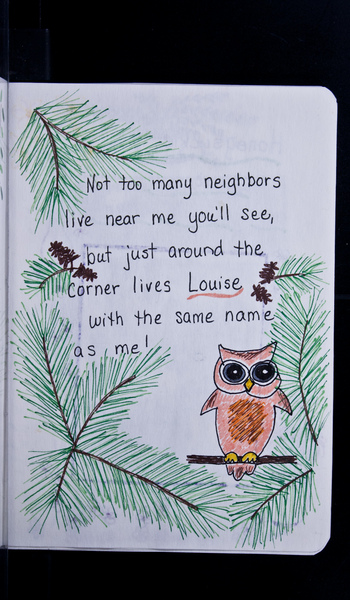 Not too many neighbors
live near me you'll see,
but just around the
corner lives Louise
with the same name
as me!